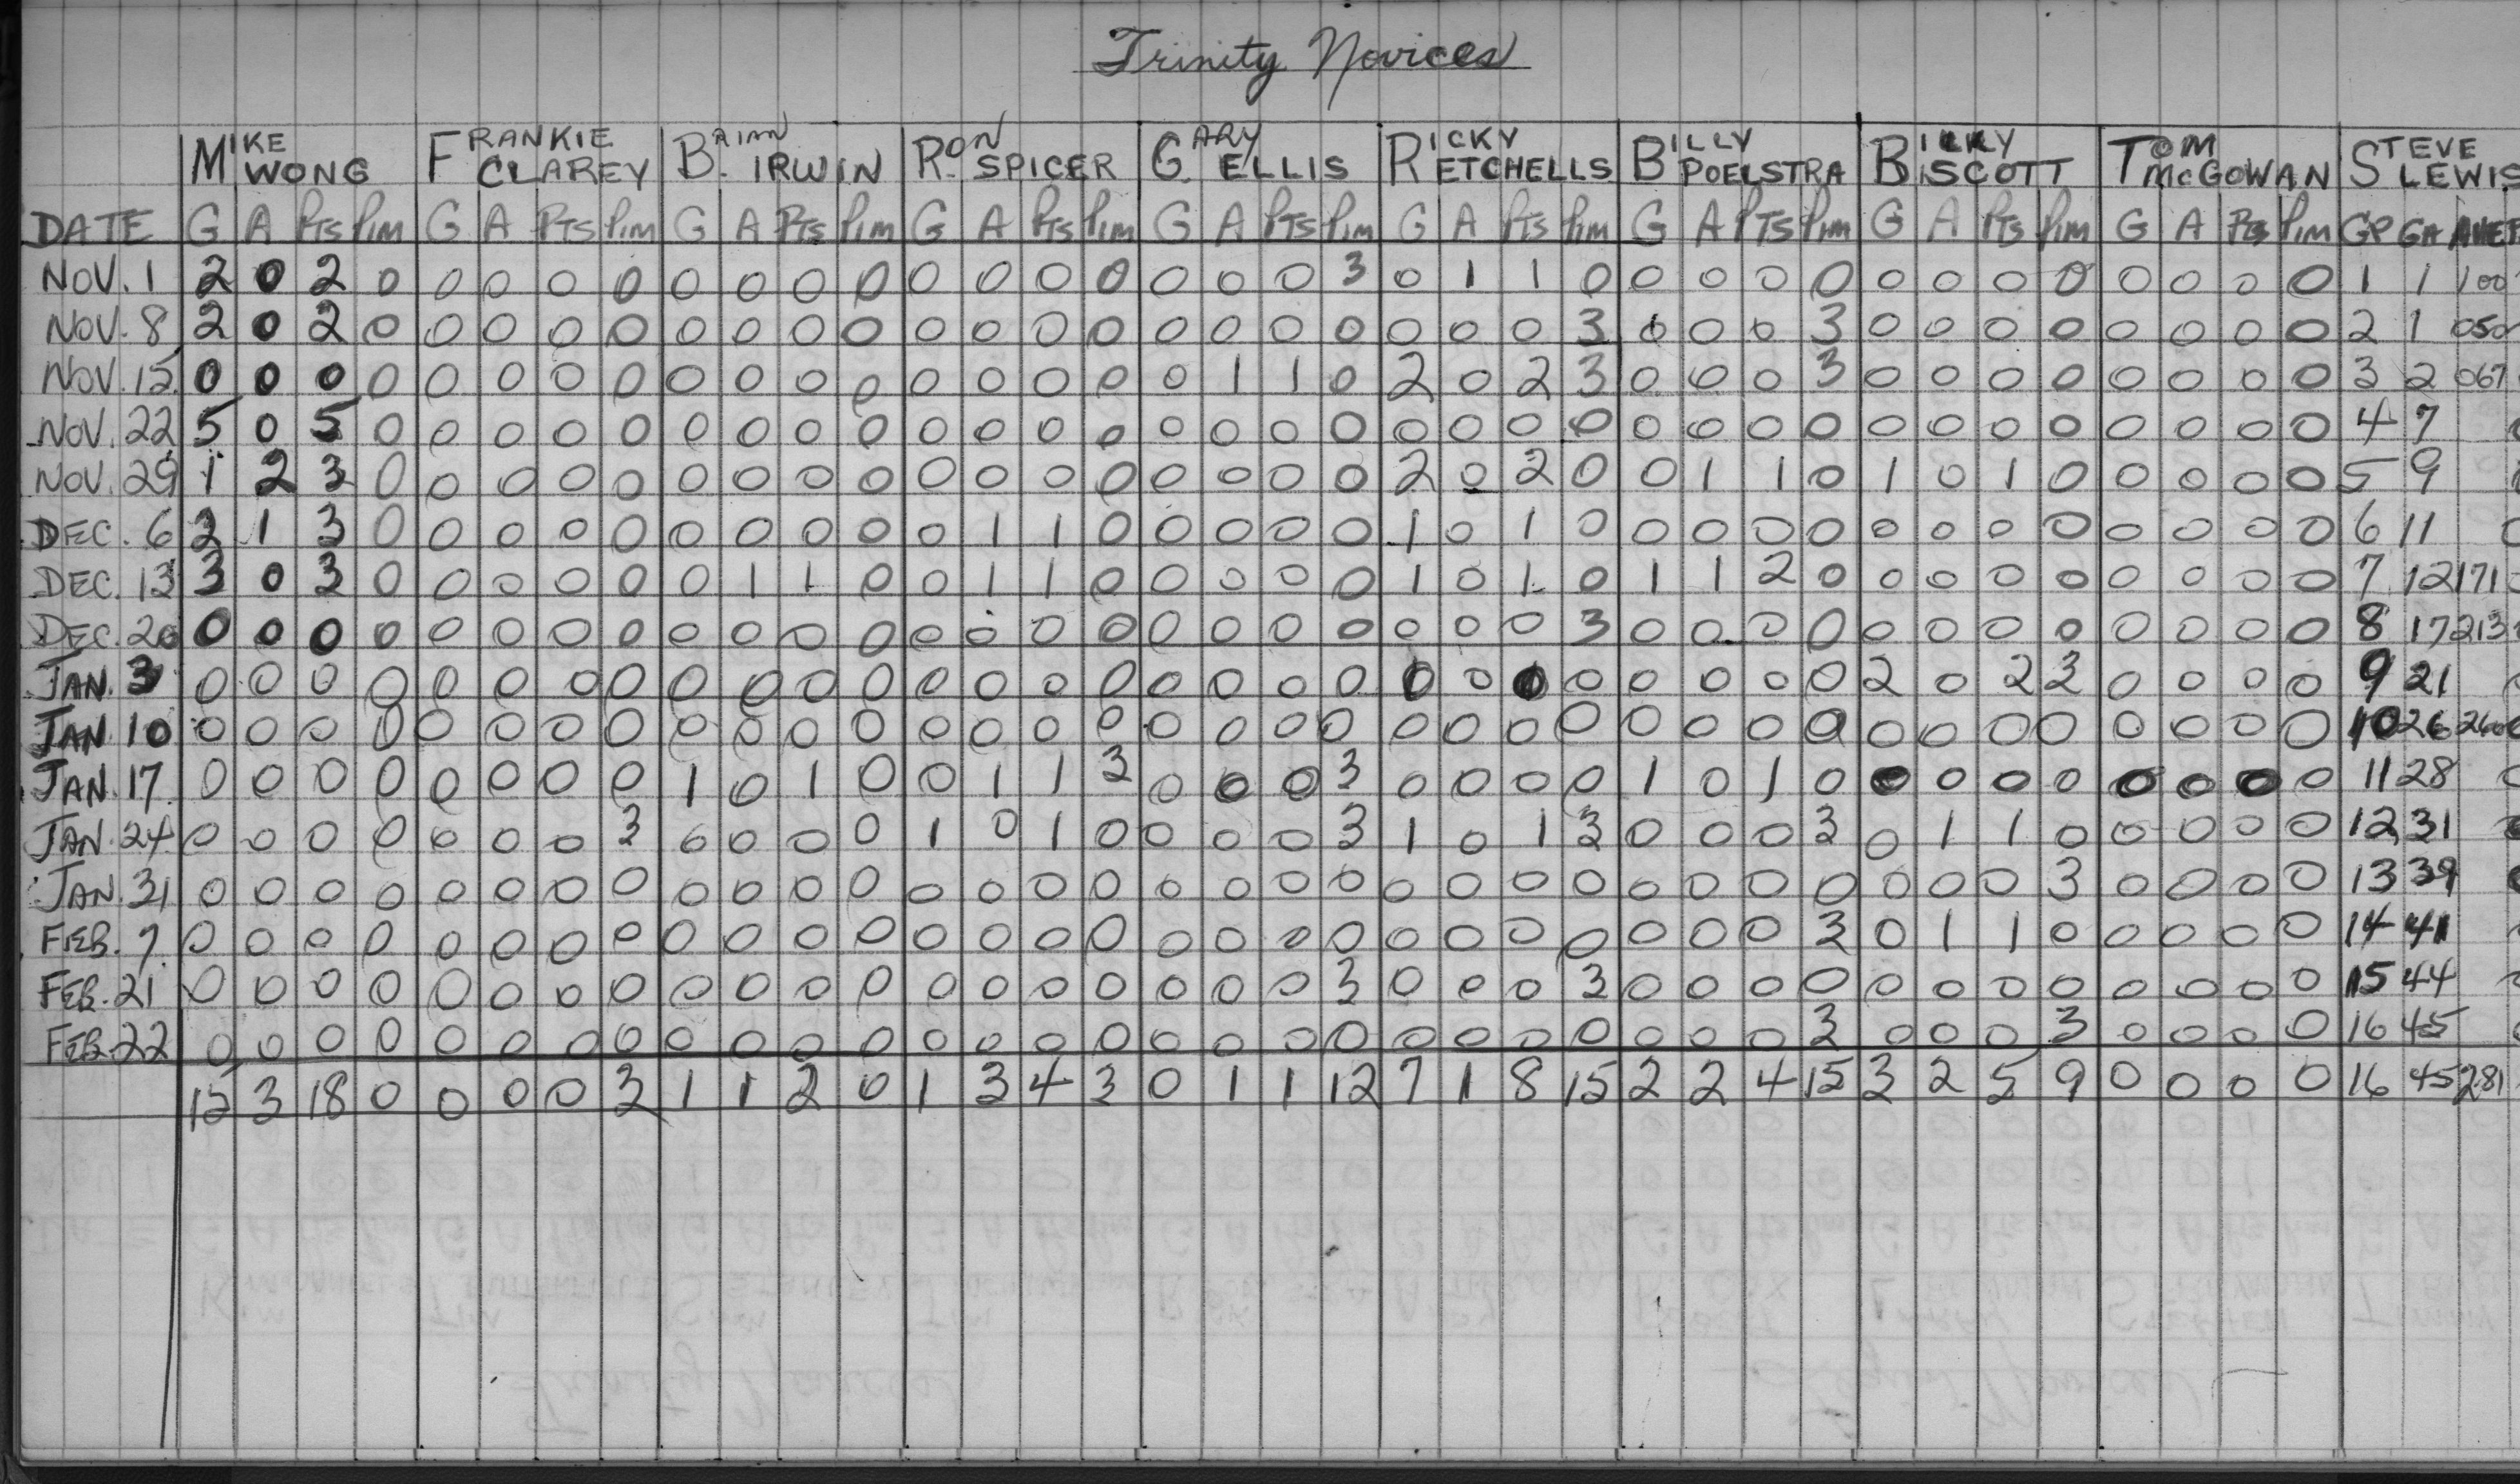 Trinity Novices
MIKE WONG FRANKIE CLAREY BRIAN IRWIN RON SPICER GARY ELLIS RICKY ETCHELLS BILLY POELSTRA BILLY SCOTT TOM McGOWAN STEVE LEWIS
DATE G A PTS PIM G A PTS PIM G A PTS PIM G A PTS PIM G A PTS PIM G A PTS PIM G A PTS PIM G A PTS PIM G A PTS PIM GP GA AVE
NOV. 1 2 0 2 0 0 0 0 0 0 0 0 0 0 0 0 0 0 0 0 3 0 1 1 0 0 0 0 0 0 0 0 0 0 0 0 0 1 1 100
NOV. 8 2 0 2 0 0 0 0 0 0 0 0 0 0 0 0 0 0 0 0 0 0 0 0 3 0 0 0 3 0 0 0 0 0 0 0 0 2 1 050
NOV. 15 0 0 0 0 0 0 0 0 0 0 0 0 0 0 0 0 0 1 1 0 2 0 2 3 0 0 0 3 0 0 0 0 0 0 0 0 3 2 067
NOV. 22 5 0 5 0 0 0 0 0 0 0 0 0 0 0 0 0 0 0 0 0 0 0 0 0 0 0 0 0 0 0 0 0 0 0 0 0 4 7
NOV. 29 1 2 3 0 0 0 0 0 0 0 0 0 0 0 0 0 0 0 0 0 2 0 2 0 0 1 1 0 1 0 1 0 0 0 0 0 5 9
DEC. 6 2 1 3 0 0 0 0 0 0 0 0 0 0 1 1 0 0 0 0 0 1 0 1 0 0 0 0 0 0 0 0 0 0 0 0 0 6 11
DEC. 13 3 0 3 0 0 0 0 0 0 1 1 0 0 1 1 0 0 0 0 0 1 0 1 0 1 1 2 0 0 0 0 0 0 0 0 0 7 12 171
DEC. 20 0 0 0 0 0 0 0 0 0 0 0 0 0 0 0 0 0 0 0 0 0 0 0 3 0 0 0 0 0 0 0 0 0 0 0 0 8 17 213
JAN. 3 0 0 0 0 0 0 0 0 0 0 0 0 0 0 0 0 0 0 0 0 0 0 0 0 0 0 0 0 2 0 2 3 0 0 0 0 9 21
JAN. 10 0 0 0 0 0 0 0 0 0 0 0 0 0 0 0 0 0 0 0 0 0 0 0 0 0 0 0 0 0 0 0 0 0 0 0 0 10 26 260
JAN. 17 0 0 0 0 0 0 0 0 1 0 1 0 0 1 1 3 0 0 0 3 0 0 0 0 1 0 1 0 0 0 0 0 0 0 0 0 11 28
JAN. 24 0 0 0 0 0 0 0 3 0 0 0 0 1 0 1 0 0 0 0 3 1 0 1 3 0 0 0 3 0 1 1 0 0 0 0 0 12 31
JAN. 31 0 0 0 0 0 0 0 0 0 0 0 0 0 0 0 0 0 0 0 0 0 0 0 0 0 0 0 0 0 0 0 3 0 0 0 0 13 39
FEB. 7 0 0 0 0 0 0 0 0 0 0 0 0 0 0 0 0 0 0 0 0 0 0 0 0 0 0 0 3 0 1 1 0 0 0 0 0 14 41
FEB. 21 0 0 0 0 0 0 0 0 0 0 0 0 0 0 0 0 0 0 0 3 0 0 0 3 0 0 0 0 0 0 0 0 0 0 0 0 15 44
FEB. 22 0 0 0 0 0 0 0 0 0 0 0 0 0 0 0 0 0 0 0 0 0 0 0 0 0 0 0 3 0 0 0 3 0 0 0 0 16 45
15 3 18 0 0 0 0 3 1 1 2 0 1 3 4 3 0 1 1 12 7 1 8 15 2 2 4 15 3 2 5 9 0 0 0 0 16 45 2.81